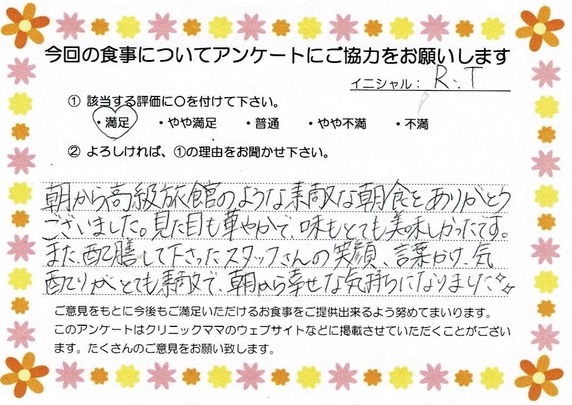 今回の食事についてアンケートにご協力をお願いします
イニシャル： R.T
① 該当する評価に○を付けて下さい。
・満足 ・やや満足 ・普通 ・やや不満 ・不満
② よろしければ、①の理由をお聞かせ下さい。
朝から高級旅館のような素敵な朝食をありがとう
ございました。見た目も華やかで、味もとても美味しかったです。
また、配膳して下さったスタッフさんの笑顔、言葉がけ、気
配りがとても素敵で、朝から幸せな気持ちになりました
ご意見をもとに今後もご満足いただけるお食事をご提供出来るよう努めてまいります。
このアンケートはクリニックママのウェブサイトなどに掲載させていただくことがござい
ます。たくさんのご意見をお願い致します。